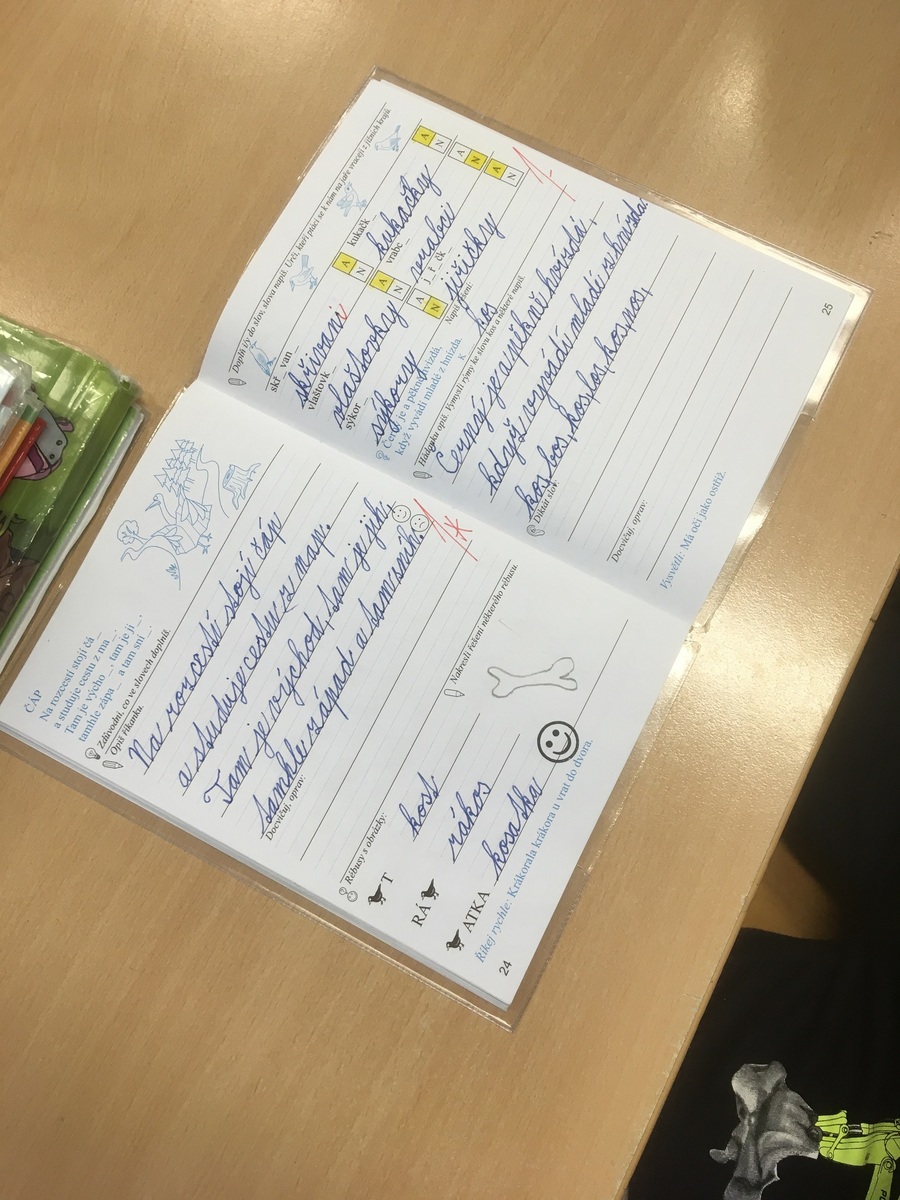 ČÁP
Na rozcestí stojí čá_
a studuje cestu z ma_.
Tam je výcho_, tam je ji_
tamhle zápa_ a tam sní_.
Zdůvodni, co ve slovech doplníš.
Opiš říkanku.
Na rozcestí stojí čáp
a studuje cestu z map.
Tam je východ, tam je jih,
tamhle západ a tam sníh.
1*
Docvičuj, oprav:
Rébusy s obrázky:
Nakresli řešení některého rébusu.
T
kost
RÁ
rákos
ATKA
kosatka
Říkej rychle: Krákorala krákora u vrat do dvora.
24
Doplň i/y do slov, slova napiš. Urči, kteří ptáci se k nám na jaře vracejí z jižních krajů.
skř_van_
A
N
kukačk_
A
N
skřivani
kukačky
vlaštovk_
A
N
vrabc_
A
N
vlaštovky
vrabci
sýkor_
A
N
j_ř_čk_
A
N
sýkory
jiřičky
1-
Černý je a pěkně hvízdá,
když vyvádí mladé z hnízda.
K
Napiš řešení:
kos
Hádanku opiš. Vymysli rýmy ke slovu kos a některé napiš.
Černý je a pěkně hvízdá,
když vyvádí mladé z hnízda.
kos, bos, kos, los, kos, nos,
Diktát slov:
Docvičuj, oprav:
Vysvětli: Má oči jako ostříž.
25